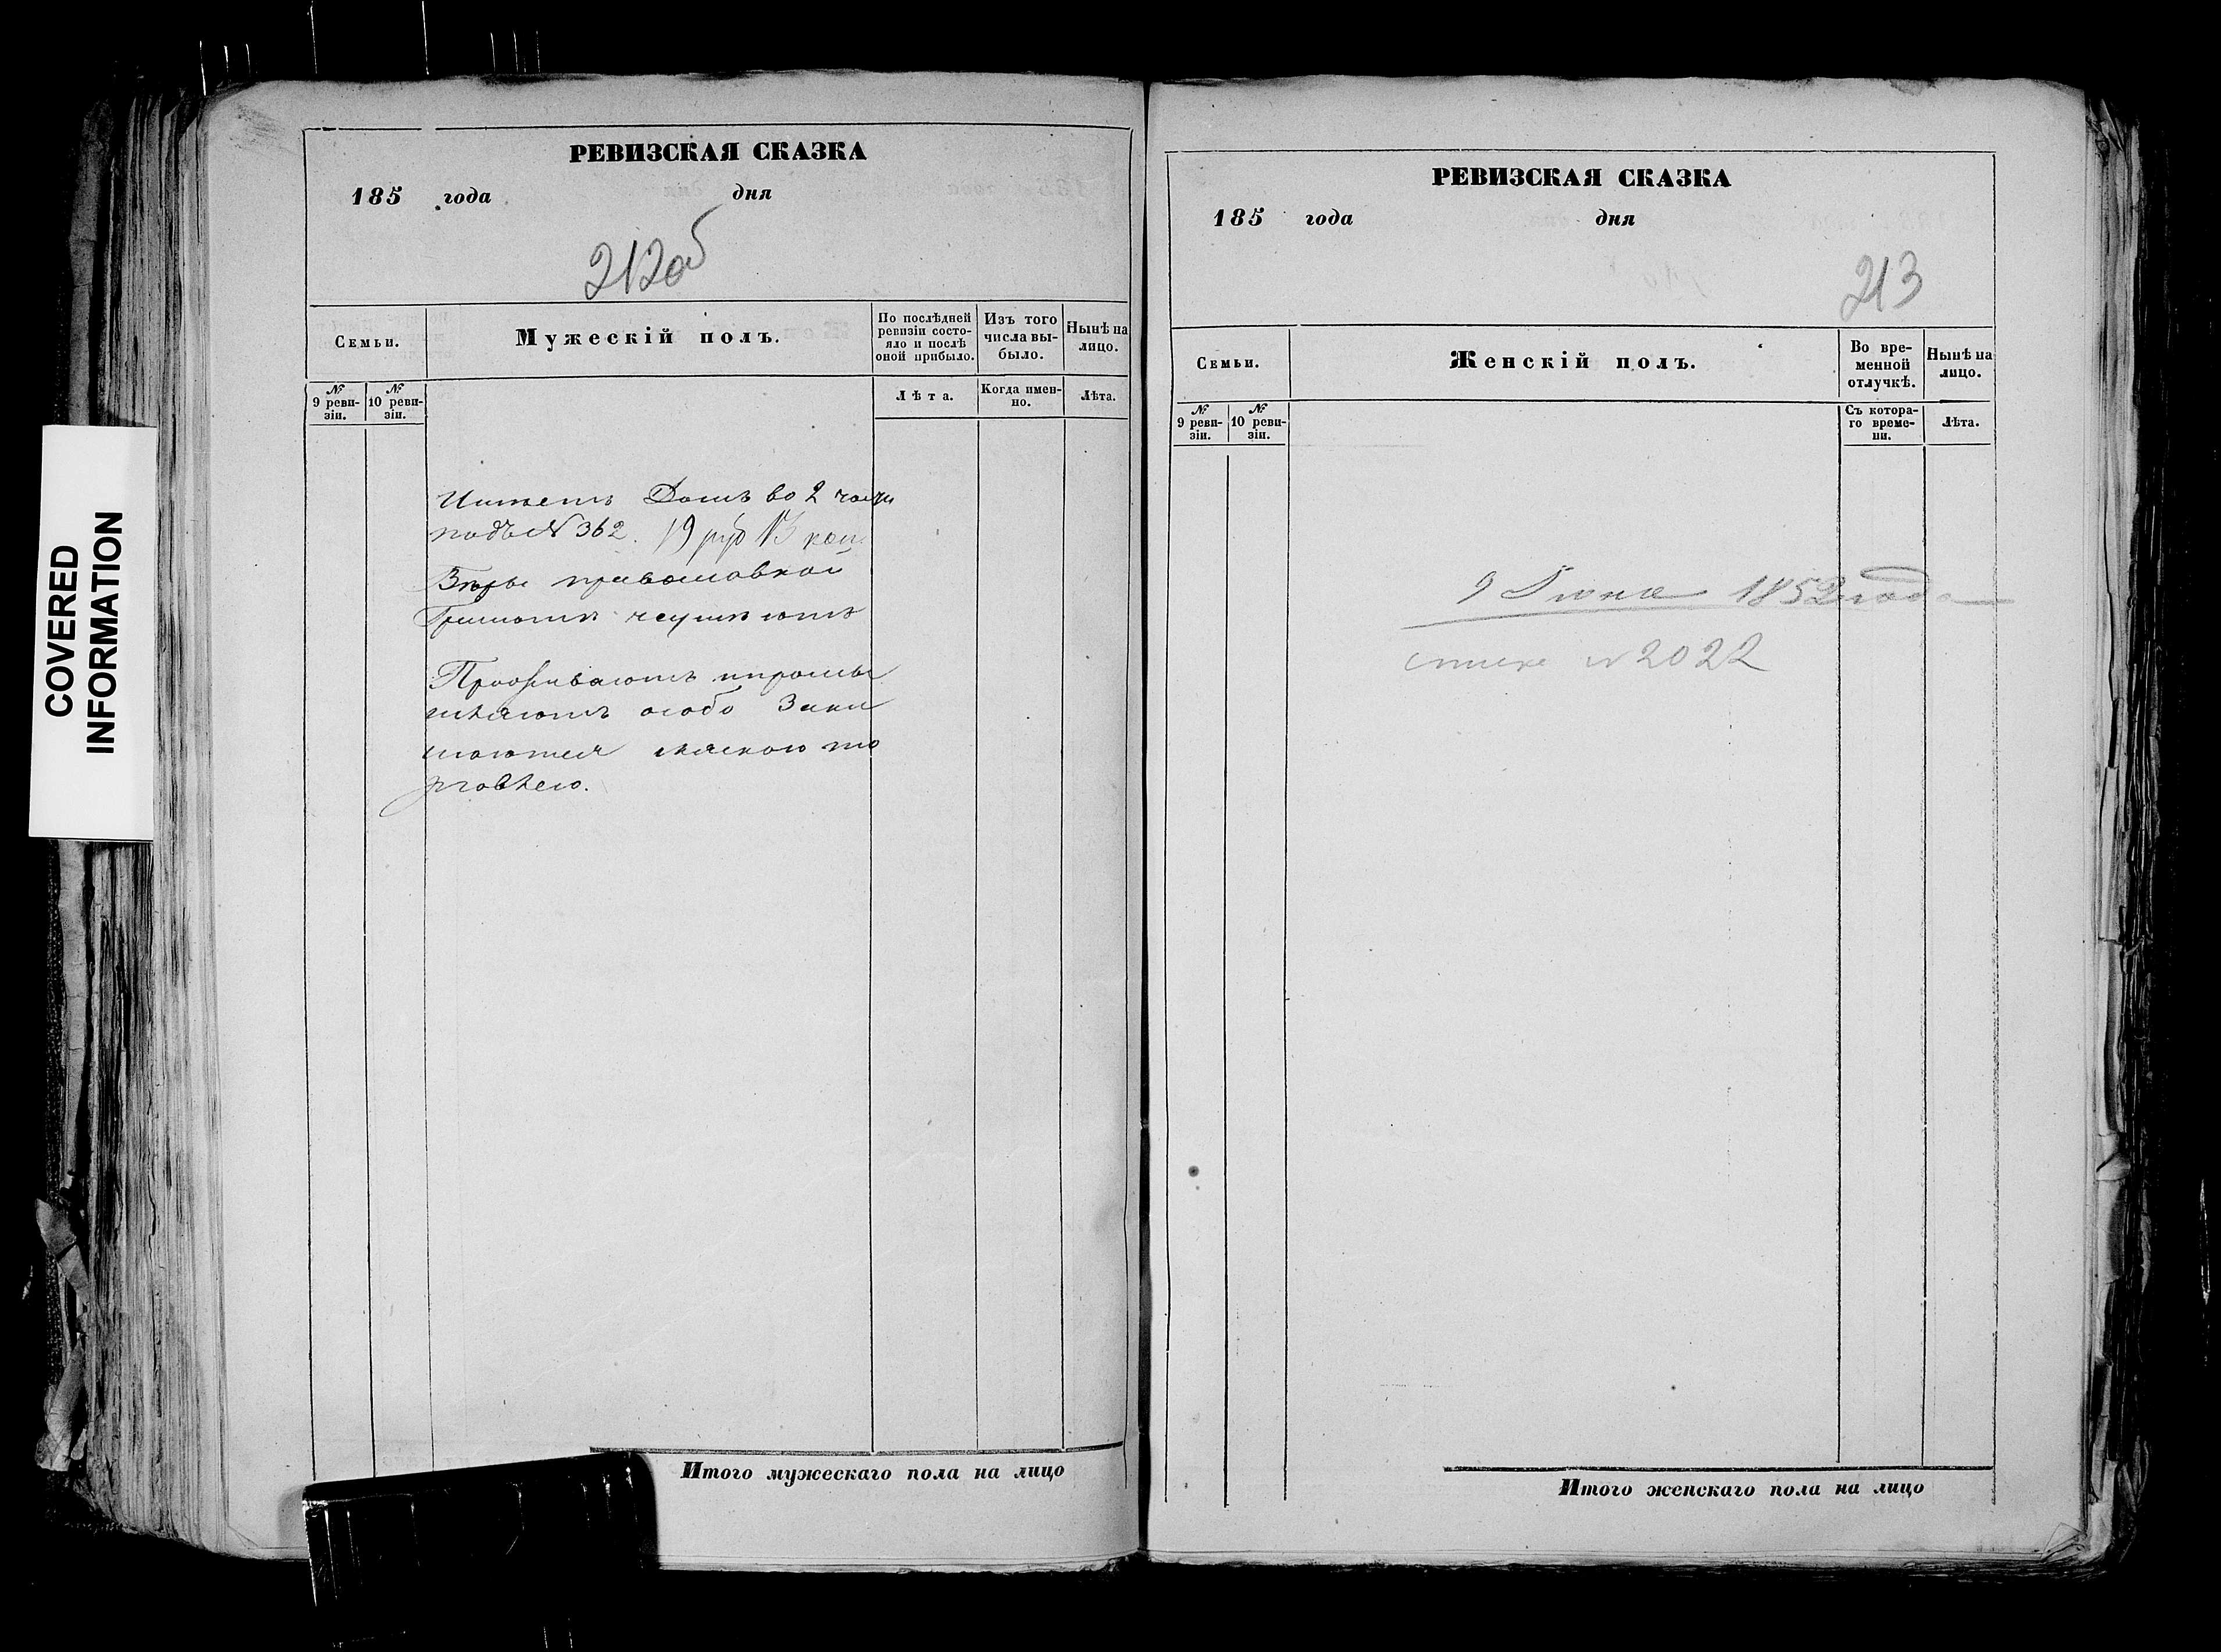 COVERED
INFORMATION
РЕВИЗСКАЯ СКАЗКА
185 года дня
212об
Семьи.
Мужескій полъ.
По послѣдней ревизіи состо-
яло и послѣ оной прибыло.
Изъ того числа вы-
было.
Нынѣ на лицо.
№ 9 реви-
зіи.
№ 10 реви-
зіи.
Лѣта.
Когда имен-
но.
Лѣта.
Имѣетъ Домъ во 2 части
подъ № 362. 19 руб 13 коп.
Вѣры православной
Грамотѣ неумѣютъ
Проживаютъ ипромы
шляютъ особо Зани
маются мяскою то
рговлею.
Итого мужескаго пола на лицо
РЕВИЗСКАЯ СКАЗКА
185 года дня
213
Семьи.
Женскій полъ.
Во вре-
менной
отлучкѣ.
Нынѣ на лицо.
№ 9 реви-
зіи.
№ 10 реви-
зіи.
Съ котора-
го време-
ни.
Лѣта.
9 Іюня 1852 года
№ 2022
Итого женскаго пола на лицо